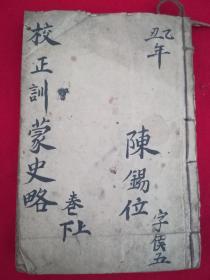 乙丑年
陳錫位
字侯五
校正訓蒙史略
卷上下